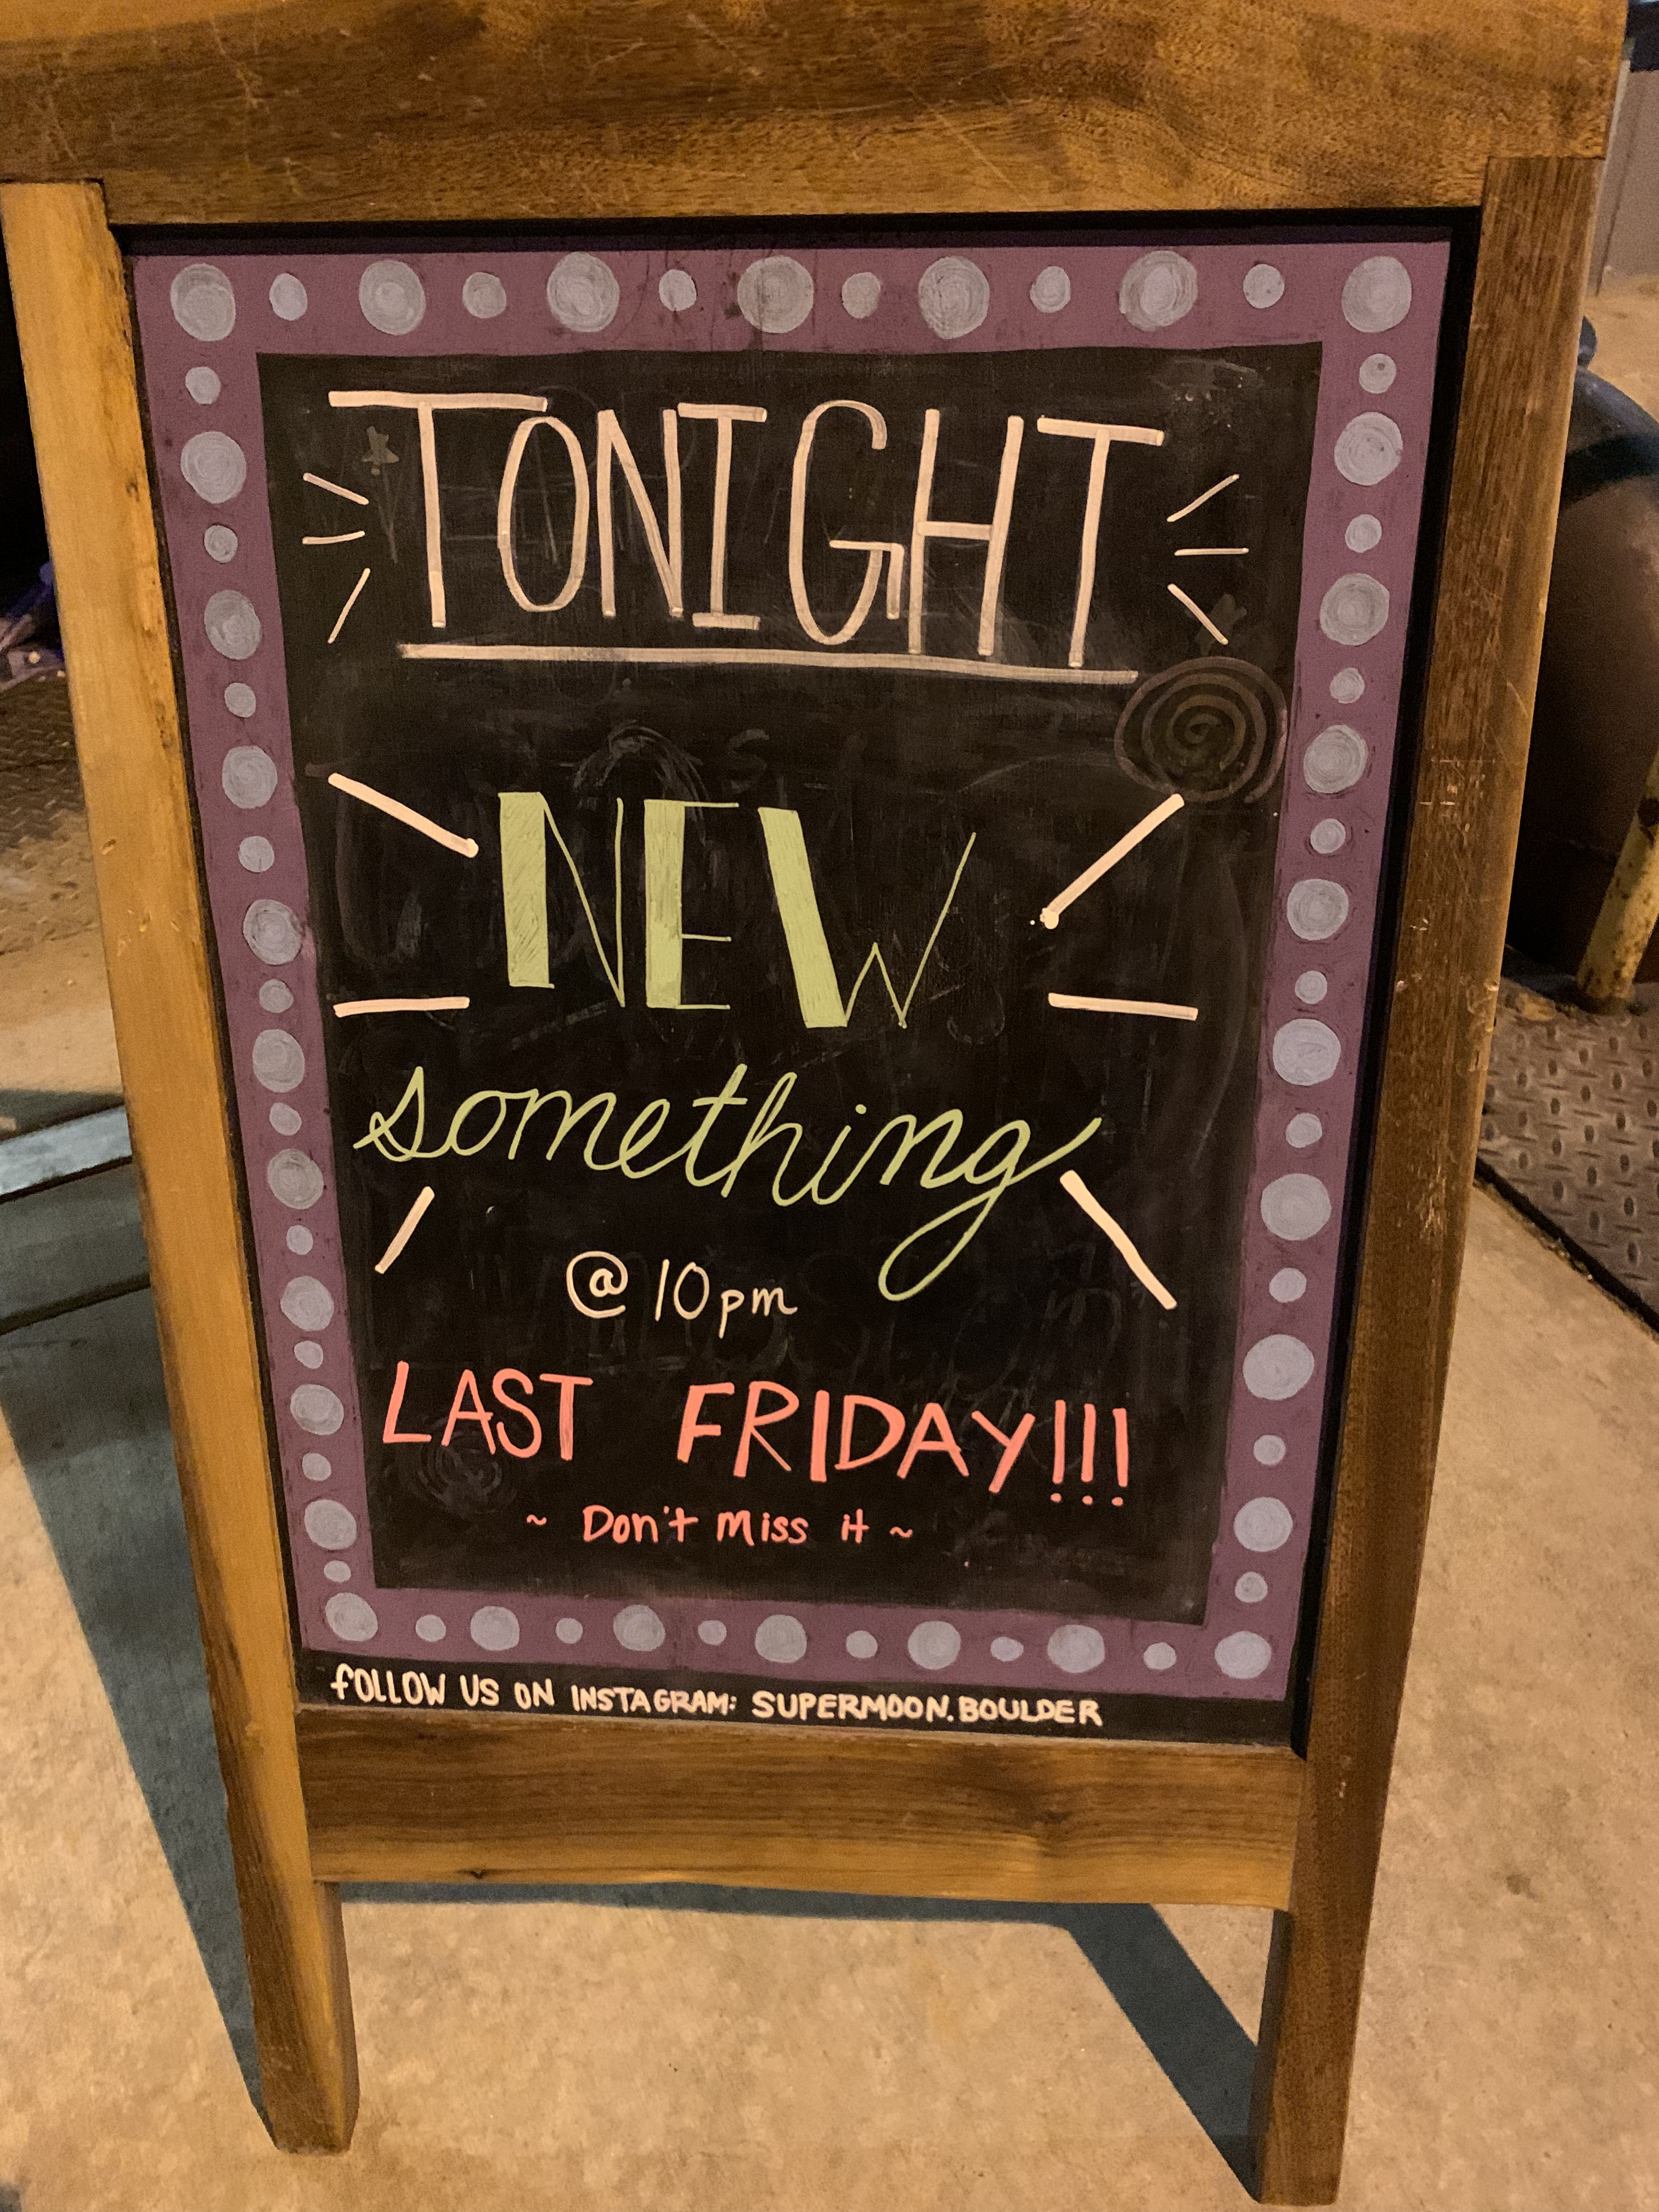 TONIGHT
NEW
something
@ 10pm
LAST FRIDAY!!!
~ Don't Miss it ~
FOLLOW US ON INSTAGRAM: SUPERMOON.BOULDER